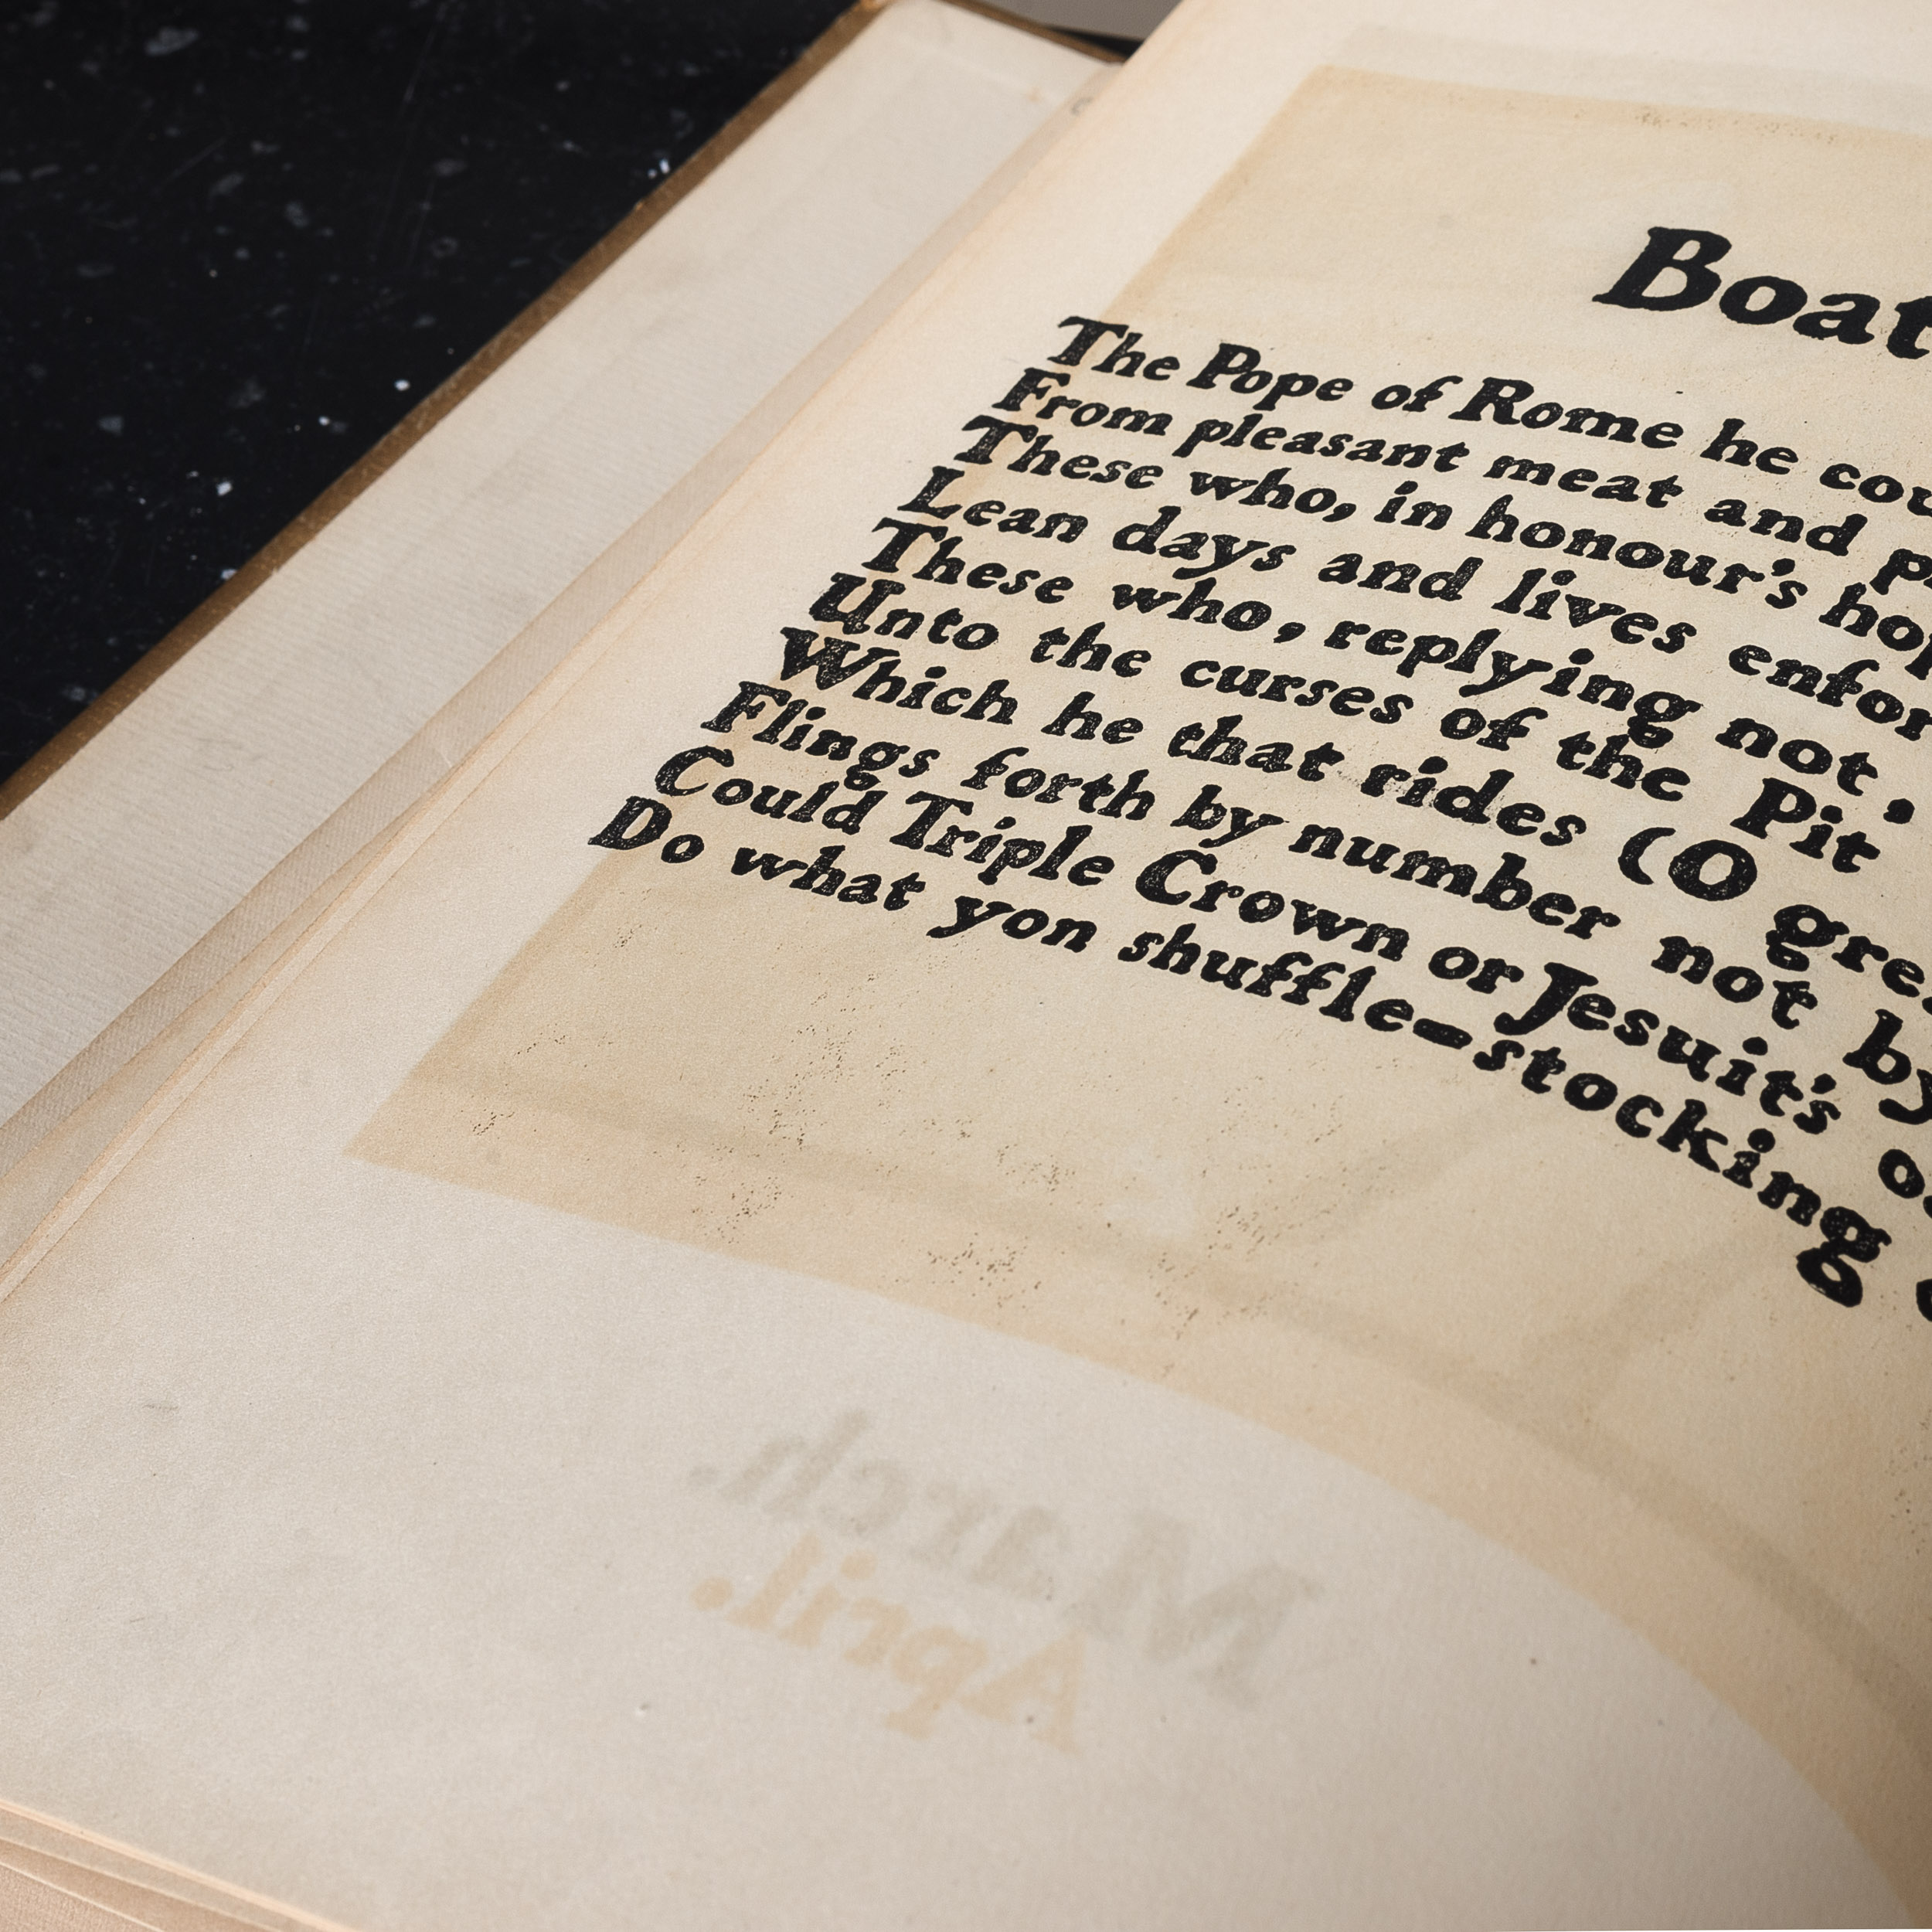 Boat
The Pope of Rome he cou
From pleasant meat and p
These who, in honour's hop
Lean days and lives enfor
These who, replying not.
Unto the curses of the Pit
Which he that rides (O gre
Flings forth by number not by
Could Triple Crown or Jesuit's o
Do what yon shuffle-stocking
March.
April.